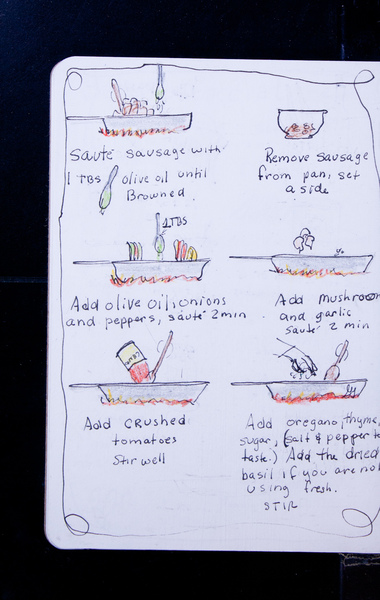 Sauté sausage with
1 TBS olive oil until
Browned.
Remove Sausage
from pan, set
aside
1 TBS
Add olive oil, onions
and peppers, sauté 2 min
Add mushroom
and garlic
sauté 2 min
Add crushed
tomatoes
Stir well
Add oregano, thyme,
sugar, (salt & pepper to
taste.) Add the dried
basil if you are not
using fresh.
STIR